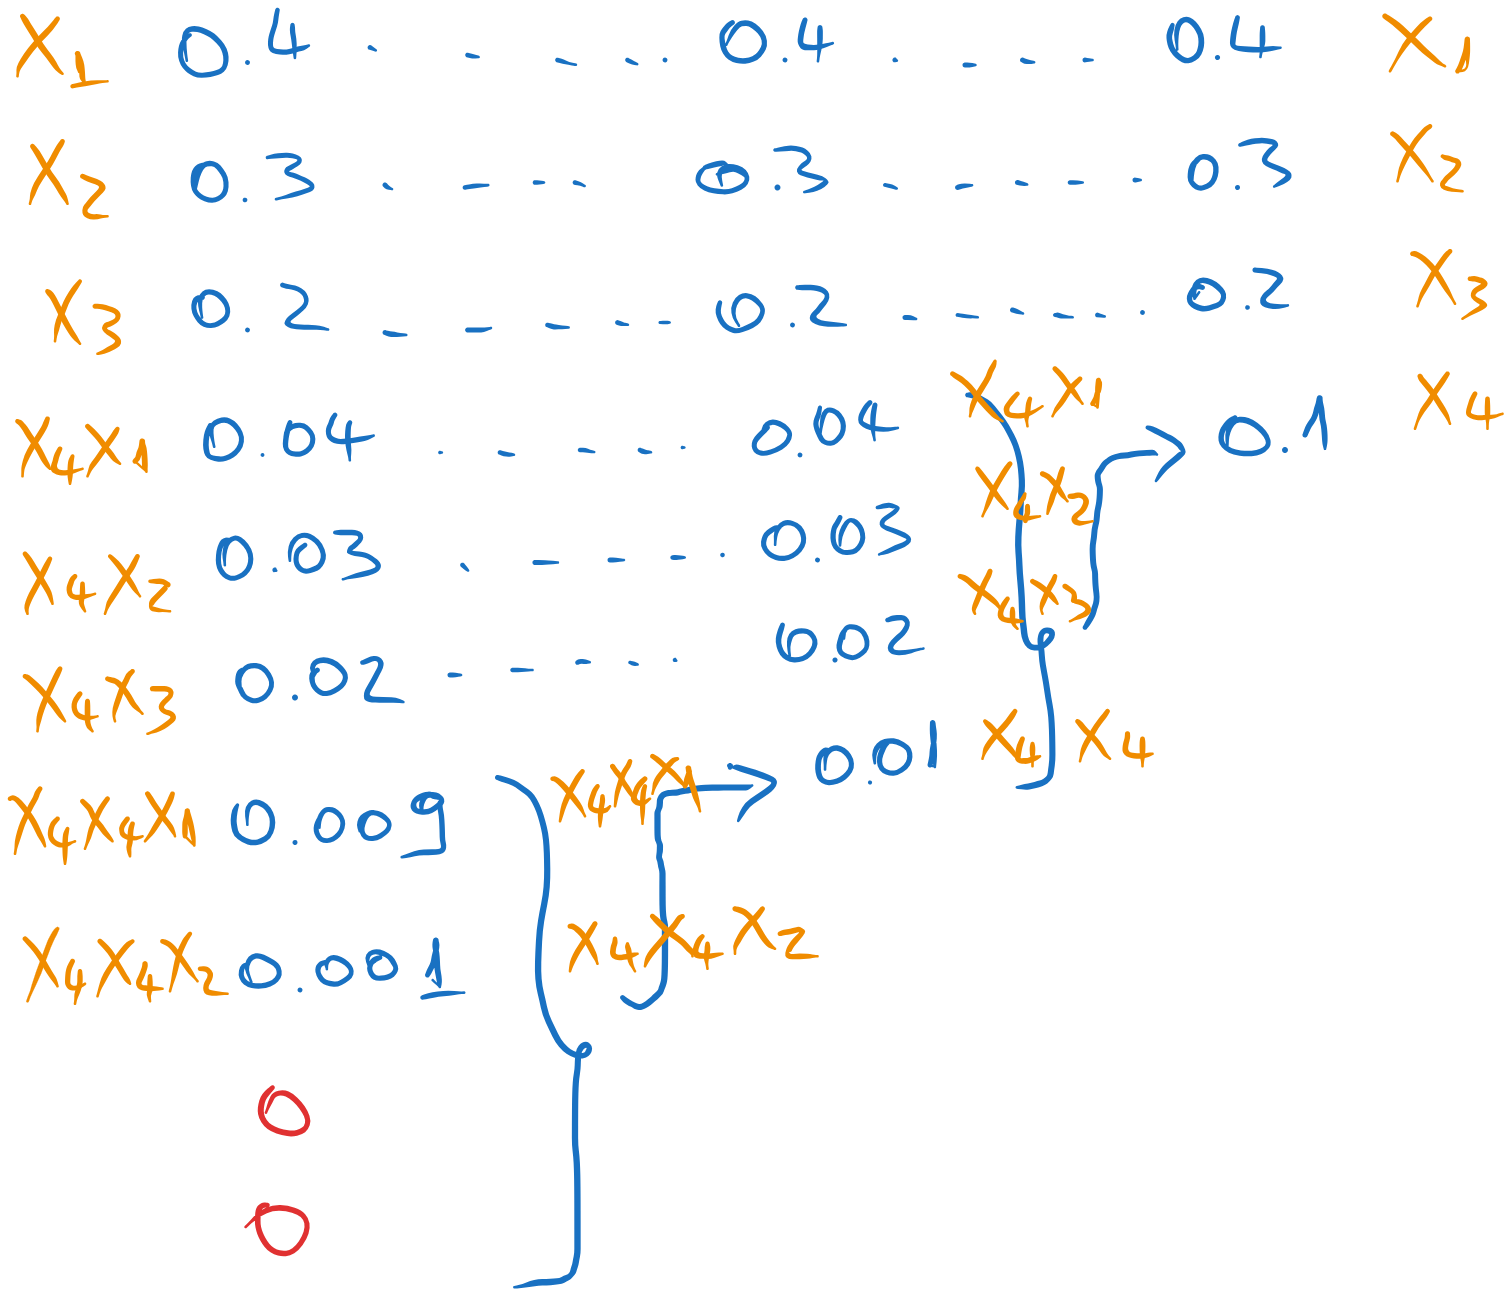 X1 0.4 . - - - . . 0.4 . - - - 0.4 X1
X2 0.3 . - - - 0.3 . - - - - 0.3 X2
X3 0.2 - - - - - 0.2 - - - - - . 0.2 X3
X4X1 0.04 . - - - . 0.04 X4X1 0.1 X4
X4X2 0.03 . - - - . 0.03 X4X2
X4X3 0.02 - - - - . 0.02 X4X3
X4X4X1 0.009 X4X4X1 0.01 X4X4
X4X4X2 0.001 X4X4X2
0
0